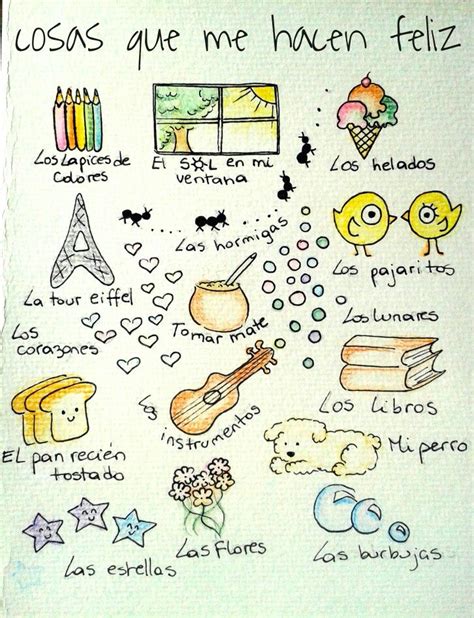 cosas que me hacen feliz
Los Lapices de
colores
El SOL en mi
ventana
Los helados
Las hormigas
Los pajaritos
La tour eiffel
Los
corazones
Tomar mate
Los Lunares
Los
instrumentos
Los Libros
EL pan recién
tostado
Mi perro
Las estrellas
Las Flores
Las burbujas